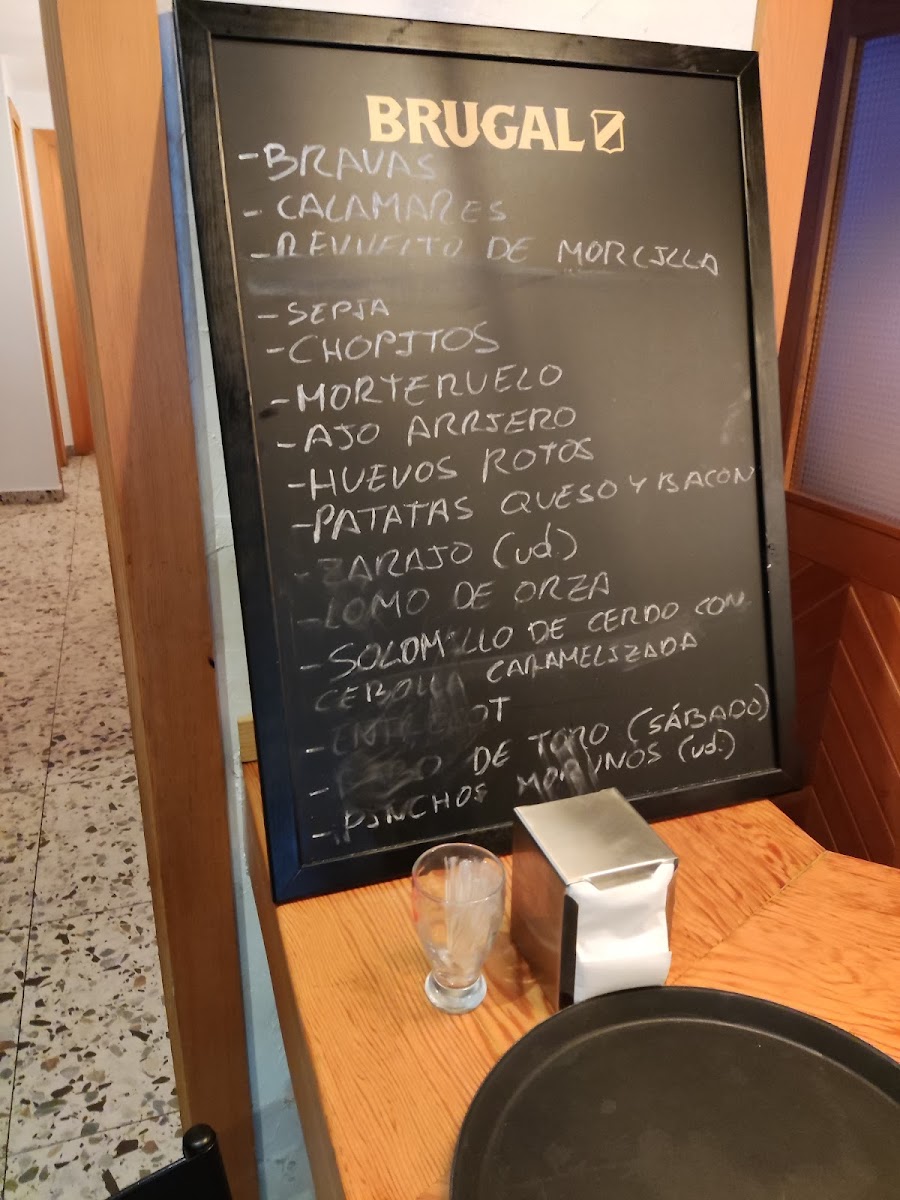 BRUGAL
-BRAVAS
-CALAMARES
-REVUELTO DE MORCILLA
-SEPIA
-CHOPITOS
-MORTERUELO
-AJO ARRIERO
-HUEVOS ROTOS
-PATATAS QUESO Y BACON
-ZARAJO (ud.)
-LOMO DE ORZA
-SOLOMILLO DE CERDO CON
CEBOLLA CARAMELIZADA
-ENTRECOT
-RABO DE TORO (SÁBADO)
-PINCHOS MORUNOS (ud.)